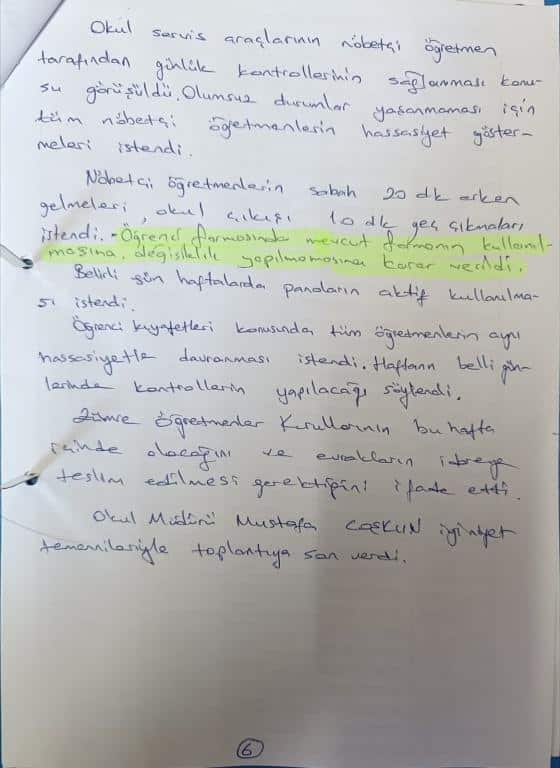 Okul servis araçlarının nöbetçi öğretmen
tarafından günlük kontrollerinin sağlanması konu-
su görüşüldü. Olumsuz durumlar yaşanmaması için
tüm nöbetçi öğretmenlerin hassasiyet göster-
meleri istendi.
Nöbetçi öğretmenlerin sabah 20 dk erken
gelmeleri, okul çıkışı 10 dk geç çıkmaları
istendi. - Öğrenci formasında mevcut formanın kullanıl-
masına, değişiklik yapılmamasına karar verildi.
Belirli gün haftalarda panoların aktif kullanılma-
sı istendi.
Öğrenci kıyafetleri konusunda tüm öğretmenlerin aynı
hassasiyetle davranması istendi. Haftanın belli gün-
lerinde kontrollerin yapılacağı söylendi.
Zümre Öğretmenler Kurullarının bu hafta
içinde olacağını ve evrakların idareye
teslim edilmesi gerektiğini ifade etti.
Okul Müdürü Mustafa COŞKUN iyi niyet
temennileriyle toplantıya son verdi.
6